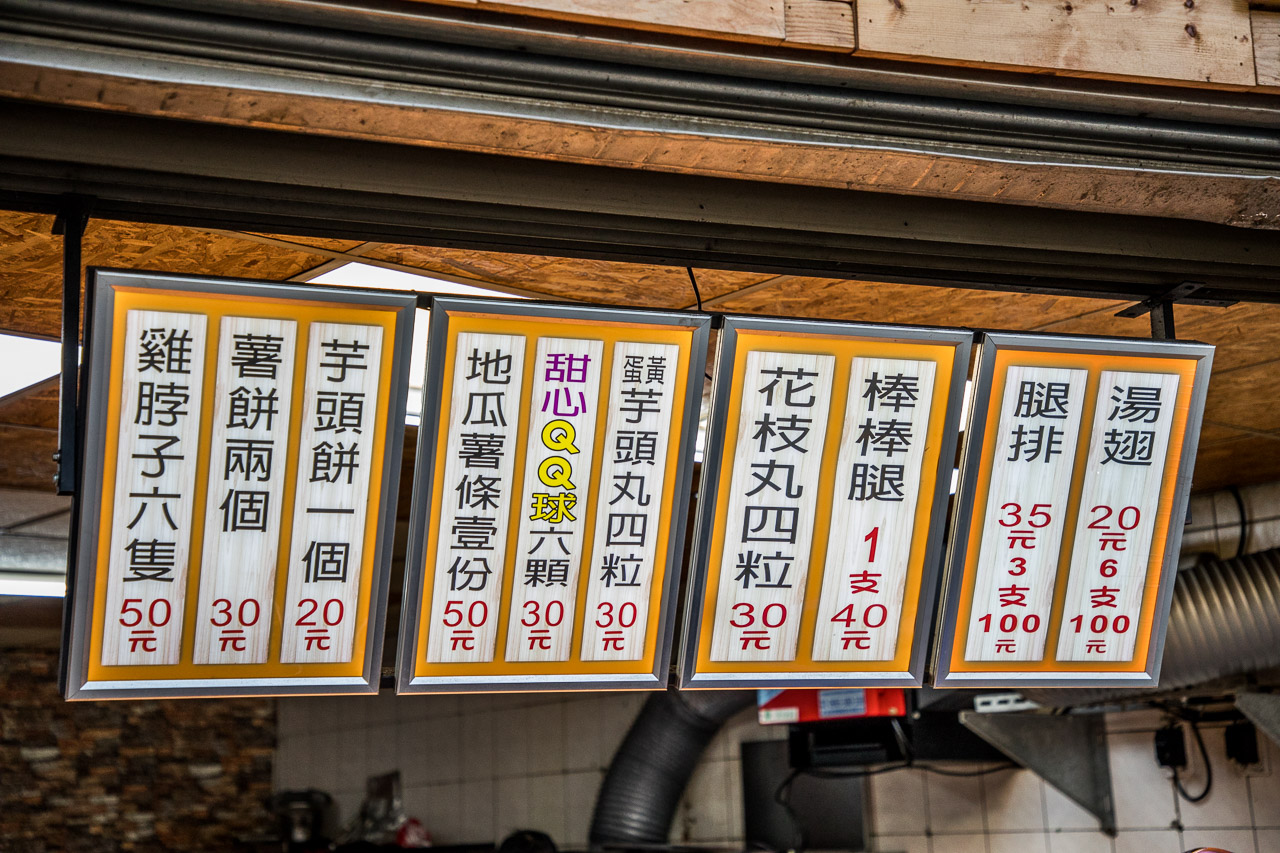 雞脖子六隻
50元
薯餅兩個
30元
芋頭餅一個
20元
地瓜薯條壹份
50元
甜心QQ球六顆
30元
蛋黃芋頭丸四粒
30元
花枝丸四粒
30元
棒棒腿
1支
40元
腿排
35元
3支
100元
湯翅
20元
6支
100元